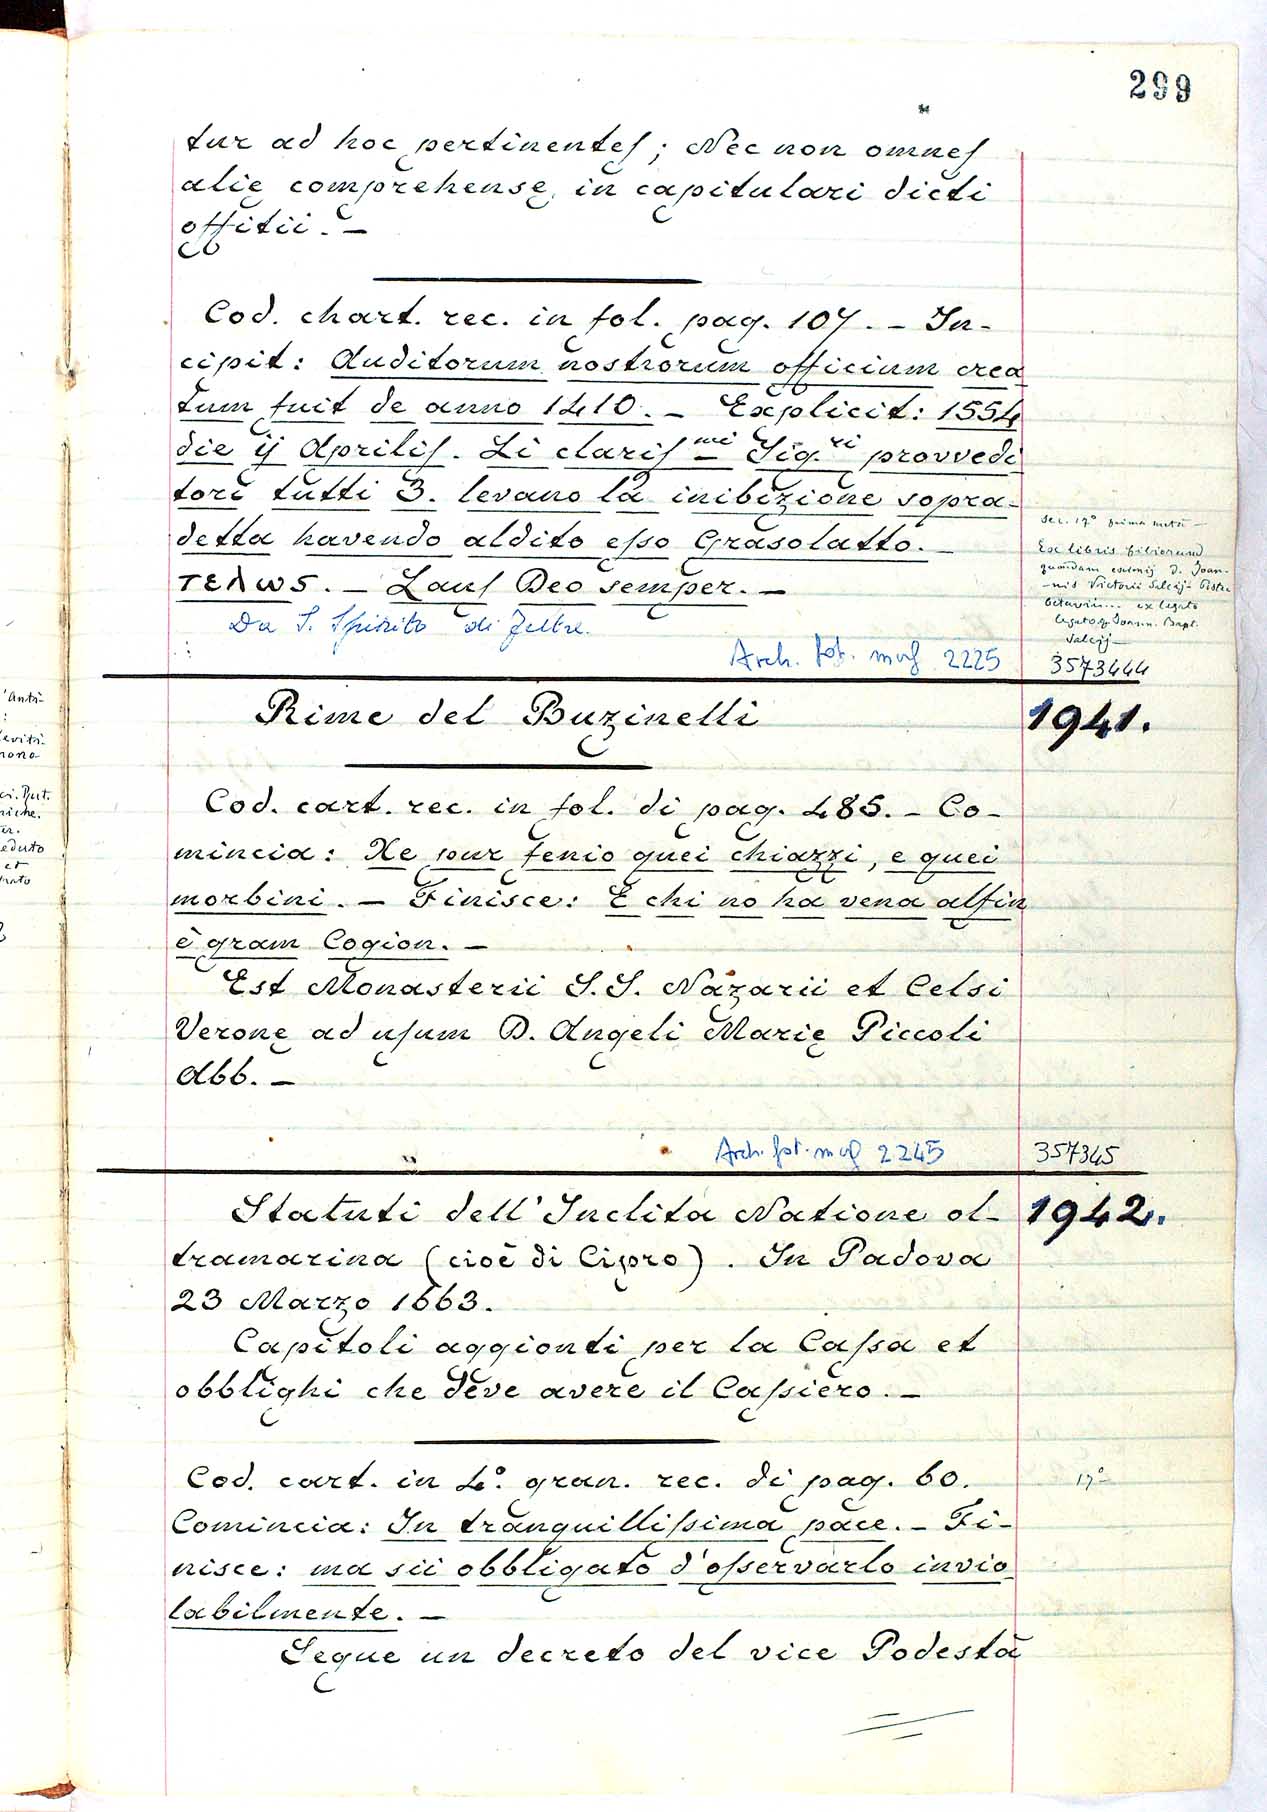 299
tur ad hoc pertinentes; Nec non omnes
alie comprehense in capitulari dicti
offitii. –
Cod. chart. rec. in fol. pag. 107. – In-
cipit: Auditorum nostrorum officium crea
tum fuit de anno 1410. – Explicit: 1554
die ij Aprilis. Li claris.mi Sig.ri provvedi
tori tutti 3. levano la inibizione sopra-
detta havendo aldito esso Grasolatto. –
τελως. – Laus Deo semper. –
Da S. Spirito di Feltre.
Arch. fot. mof 2225
sec. 17° prima metà –
Ex libris filiorum
quondam D. Joan-
-nis Victorii Salcij
ex legato
Joann. Bapt.
Salcij –
3573444
Rime del Buzinelli
1941.
Cod. cart. rec. in fol. di pag. 485. – Co-
mincia: Xe pur fenio quei chiazzi, e quei
morbini. – Finisce: E chi no ha vena alfin
è gram Cogion. –
Est Monasterii S.S. Nazarii et Celsi
Veronę ad usum D. Angeli Marię Piccoli
Abb. –
Arch. fot. mof 2245
357345
Statuti dell'Inclita Natione ol-
1942.
tramarina (cioè di Cipro). In Padova
23 Marzo 1663.
Capitoli aggionti per la Cassa et
obblighi che deve avere il Cassiero. –
Cod. cart. in 4.° gran. rec. di pag. 60.
17°
Comincia: In tranquillissima pace. – Fi-
nisce: ma sii obbligato d'osservarlo invio
labilmente. –
Segue un decreto del vice Podestà